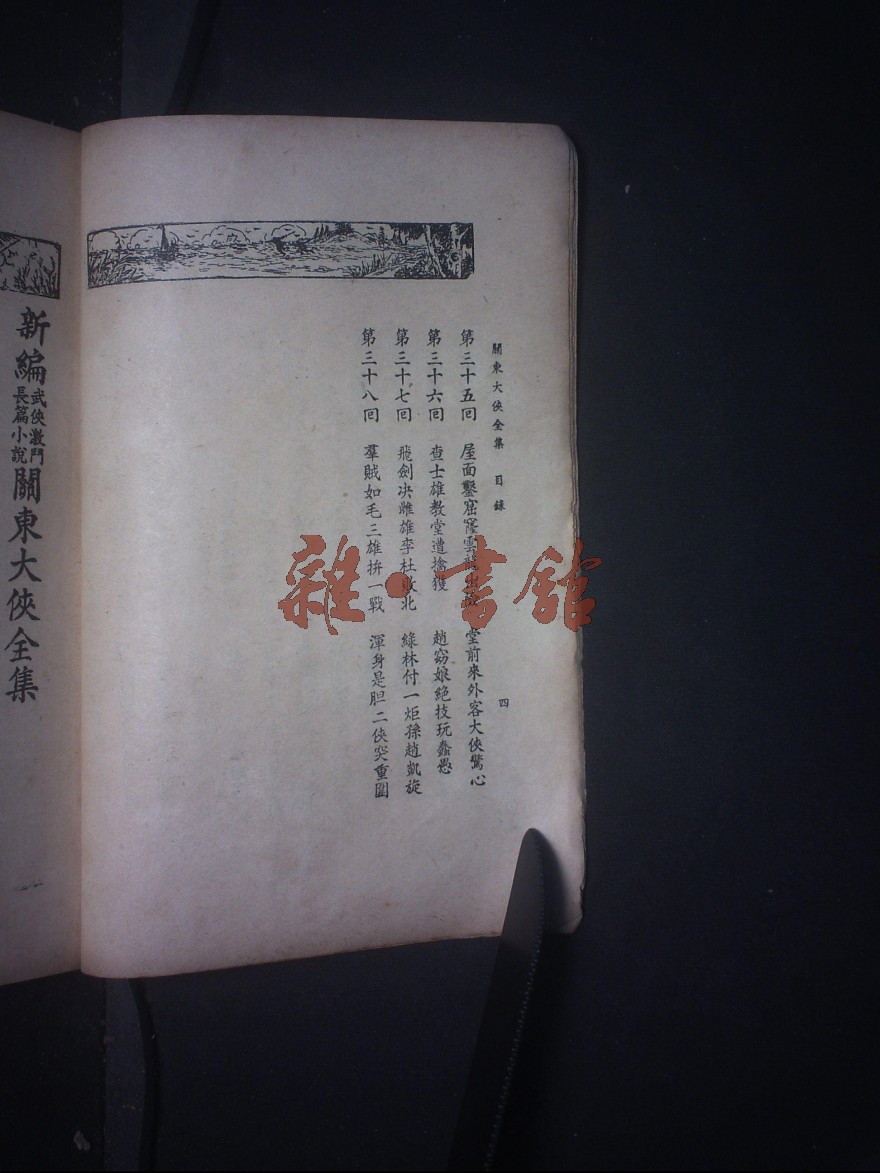 關東大俠全集 目錄 四
第三十五回 屋面鑿窟窿雲龍出險 堂前來外客大俠驚心
第三十六回 查士雄教堂遭擒獲 趙窈娘絕技玩蠢愚
第三十七回 飛劍决雌雄李杜敗北 綠林付一炬孫趙凱旋
第三十八回 羣賊如毛三雄拚一戰 渾身是胆二俠突重圍
新編武俠激鬥長篇小說關東大俠全集
雜·書館